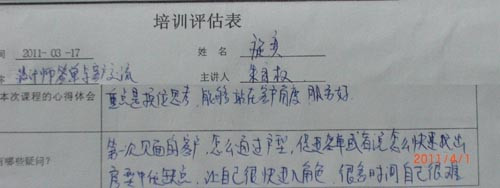 培训评估表
间 2011-03-17 姓 名
设计师签单与客户交流 主讲人
本次课程的心得体会 重点是换位思考,能够站在客户角度服务好.
第一次见面的客户,怎么通过户型,促进签单或者说怎么快速找出
有哪些疑问? 房型中优缺点,让自己很快进入角色,很多时间自己很难
2011/4/1